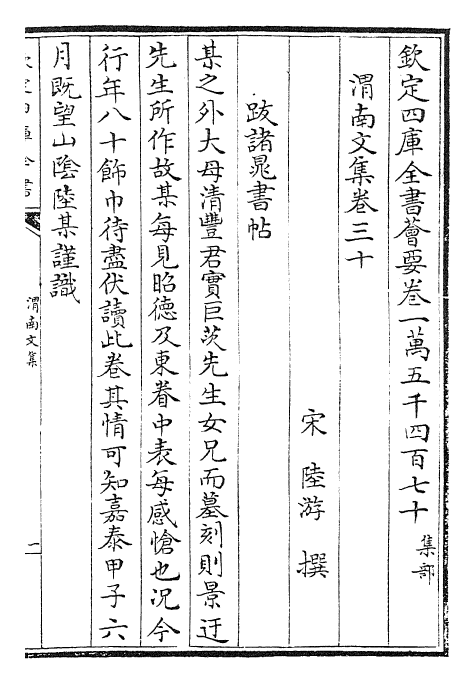 欽定四庫全書薈要卷一萬五千四百七十 集部
渭南文集卷三十
宋 陸游 撰
跋諸晁書帖
某之外大母清豐君實巨茨先生女兄而墓刻則景迂
先生所作故某每見昭德及東眷中表每感愴也況今
行年八十飾巾待盡伏讀此卷其情可知嘉泰甲子六
月既望山陰陸某謹識
渭南文集
一